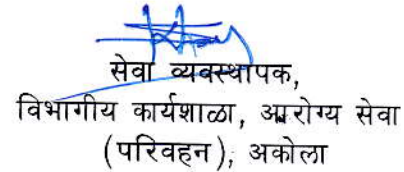 सेवा व्यवस्थापक,
विभागीय कार्यशाळा, आरोग्य सेवा
(परिवहन), अकोला